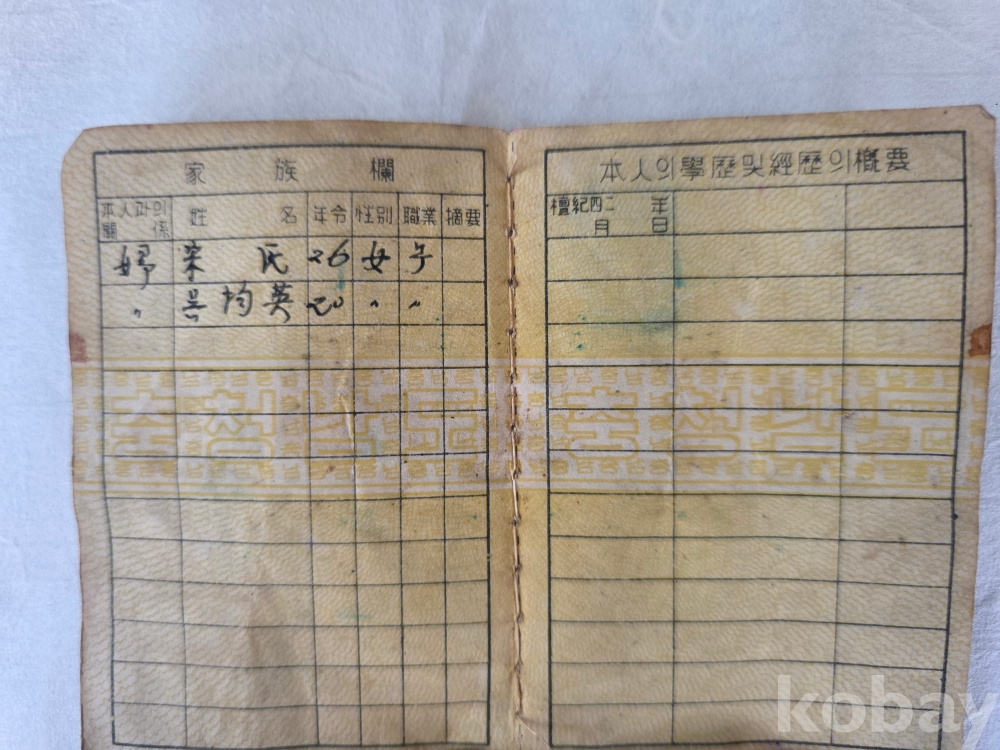 家族欄
本人과의關係 姓名 年令 性別 職業 摘要
婦 宋氏 26 女子
〃 吳均英 20 〃 〃
本人의學歷및經歷의槪要
檀紀四二 年
月 日
kobay